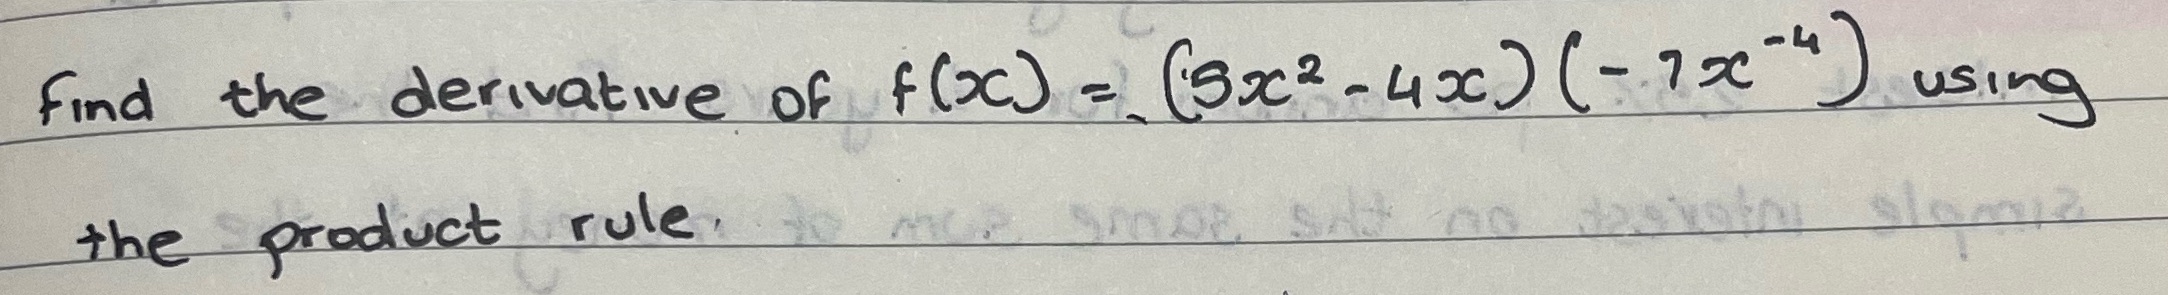 find the derivative of f(x) = (5x² - 4x)(-7x⁻⁴) using
the product rule.